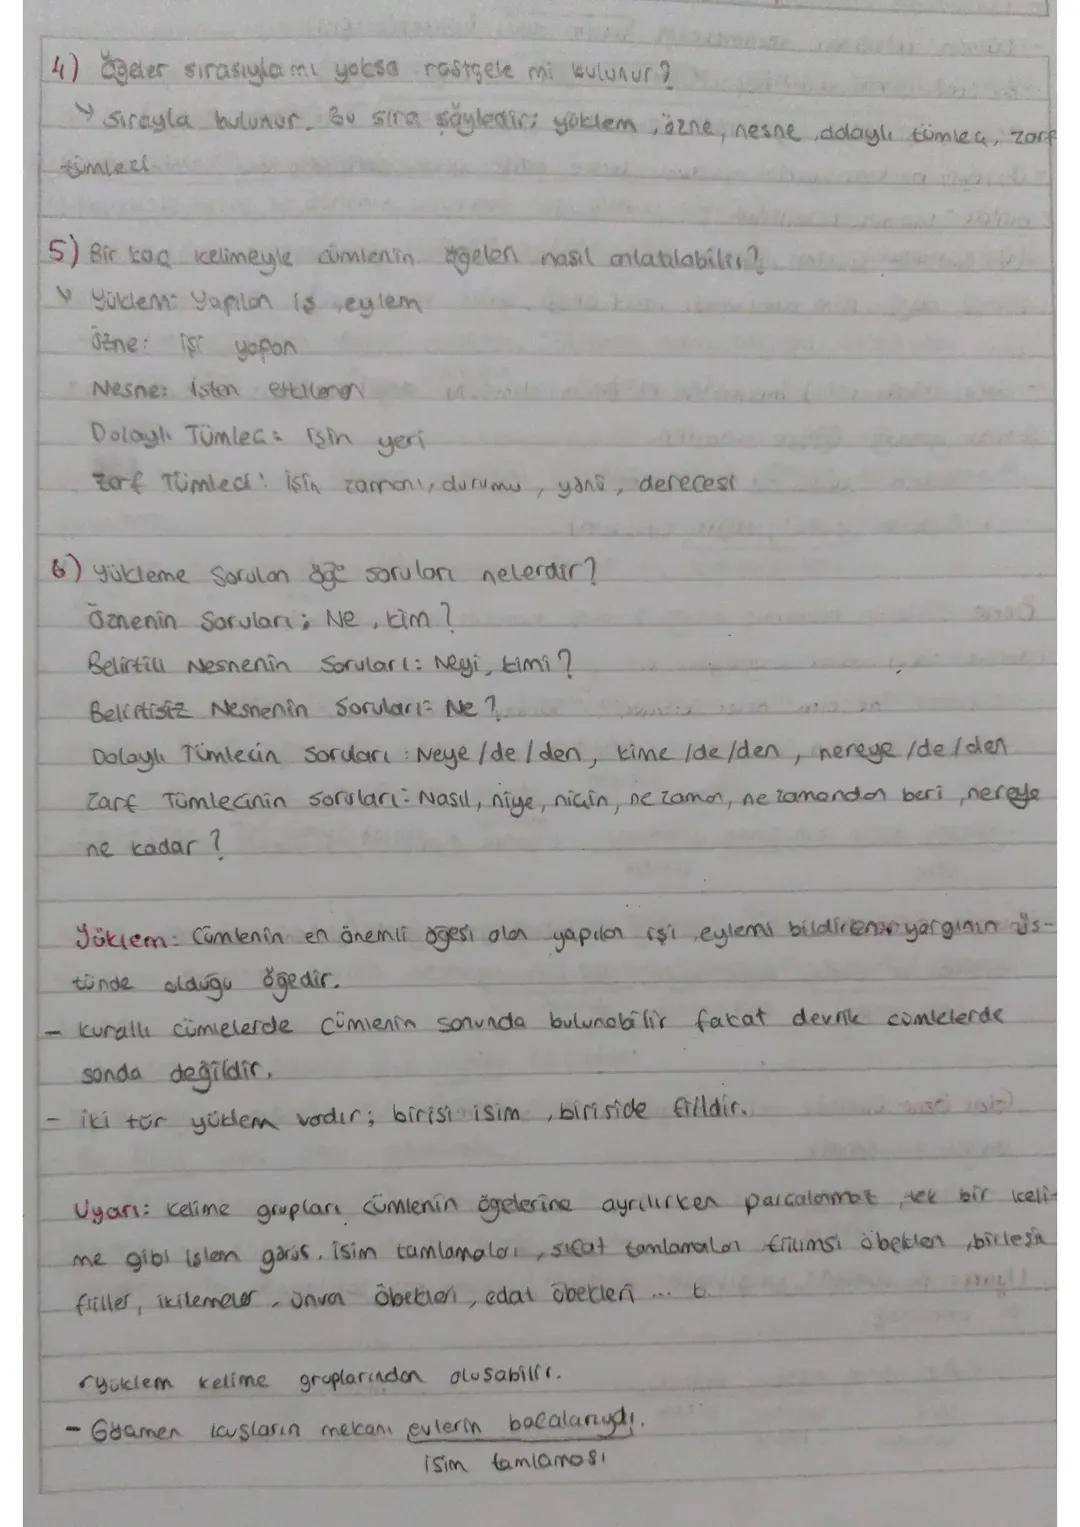 4) Öğeler sırasıyla mı yoksa rastgele mi bulunur?
Sırayla bulunur. Bu sıra şöyledir; yüklem, özne, nesne, dolaylı tümleç, zarf
tümleci
5) Bir kaç kelimeyle cümlenin öğeleri nasıl anlatılabilir?
Yüklem: Yapılan iş, eylem
Özne: İşi yapan
Nesne: İşten etkilenen
Dolaylı Tümleç: İşin yeri
Zarf Tümleci: İşin zamanı, durumu, yönü, derecesi
6) Yükleme Sorulan öğe soruları nelerdir?
Öznenin Soruları; Ne, kim?
Belirtili Nesnenin Soruları: Neyi, kimi?
Belirtisiz Nesnenin Soruları: Ne?
Dolaylı Tümlecin Soruları: Neye/de/den, kime/de/den, nereye/de/den
Zarf Tümlecinin Soruları: Nasıl, niye, niçin, ne zaman, ne zamandan beri, nereye
ne kadar?
Yüklem: Cümlenin en önemli öğesi olan yapılan işi, eylemi bildiren yargının üs-
tünde olduğu öğedir.
- Kurallı cümlelerde cümlenin sonunda bulunabilir fakat devrik cümlelerde
sonda değildir.
- iki tür yüklem vardır; birisi isim, biriside fiildir.
Uyarı: Kelime grupları cümlenin öğelerine ayrılırken parçalanmaz, tek bir keli-
me gibi işlem görüs. İsim tamlamaları, sıfat tamlamaları fiilimsi öbekleri, birleşik
fiiller, ikilemeler, ünvan öbekleri, edat öbekleri ... b.
yüklem kelime gruplarından oluşabilir.
- Göçmen kuşların mekanı evlerin bacalarıydı.
isim tamlaması